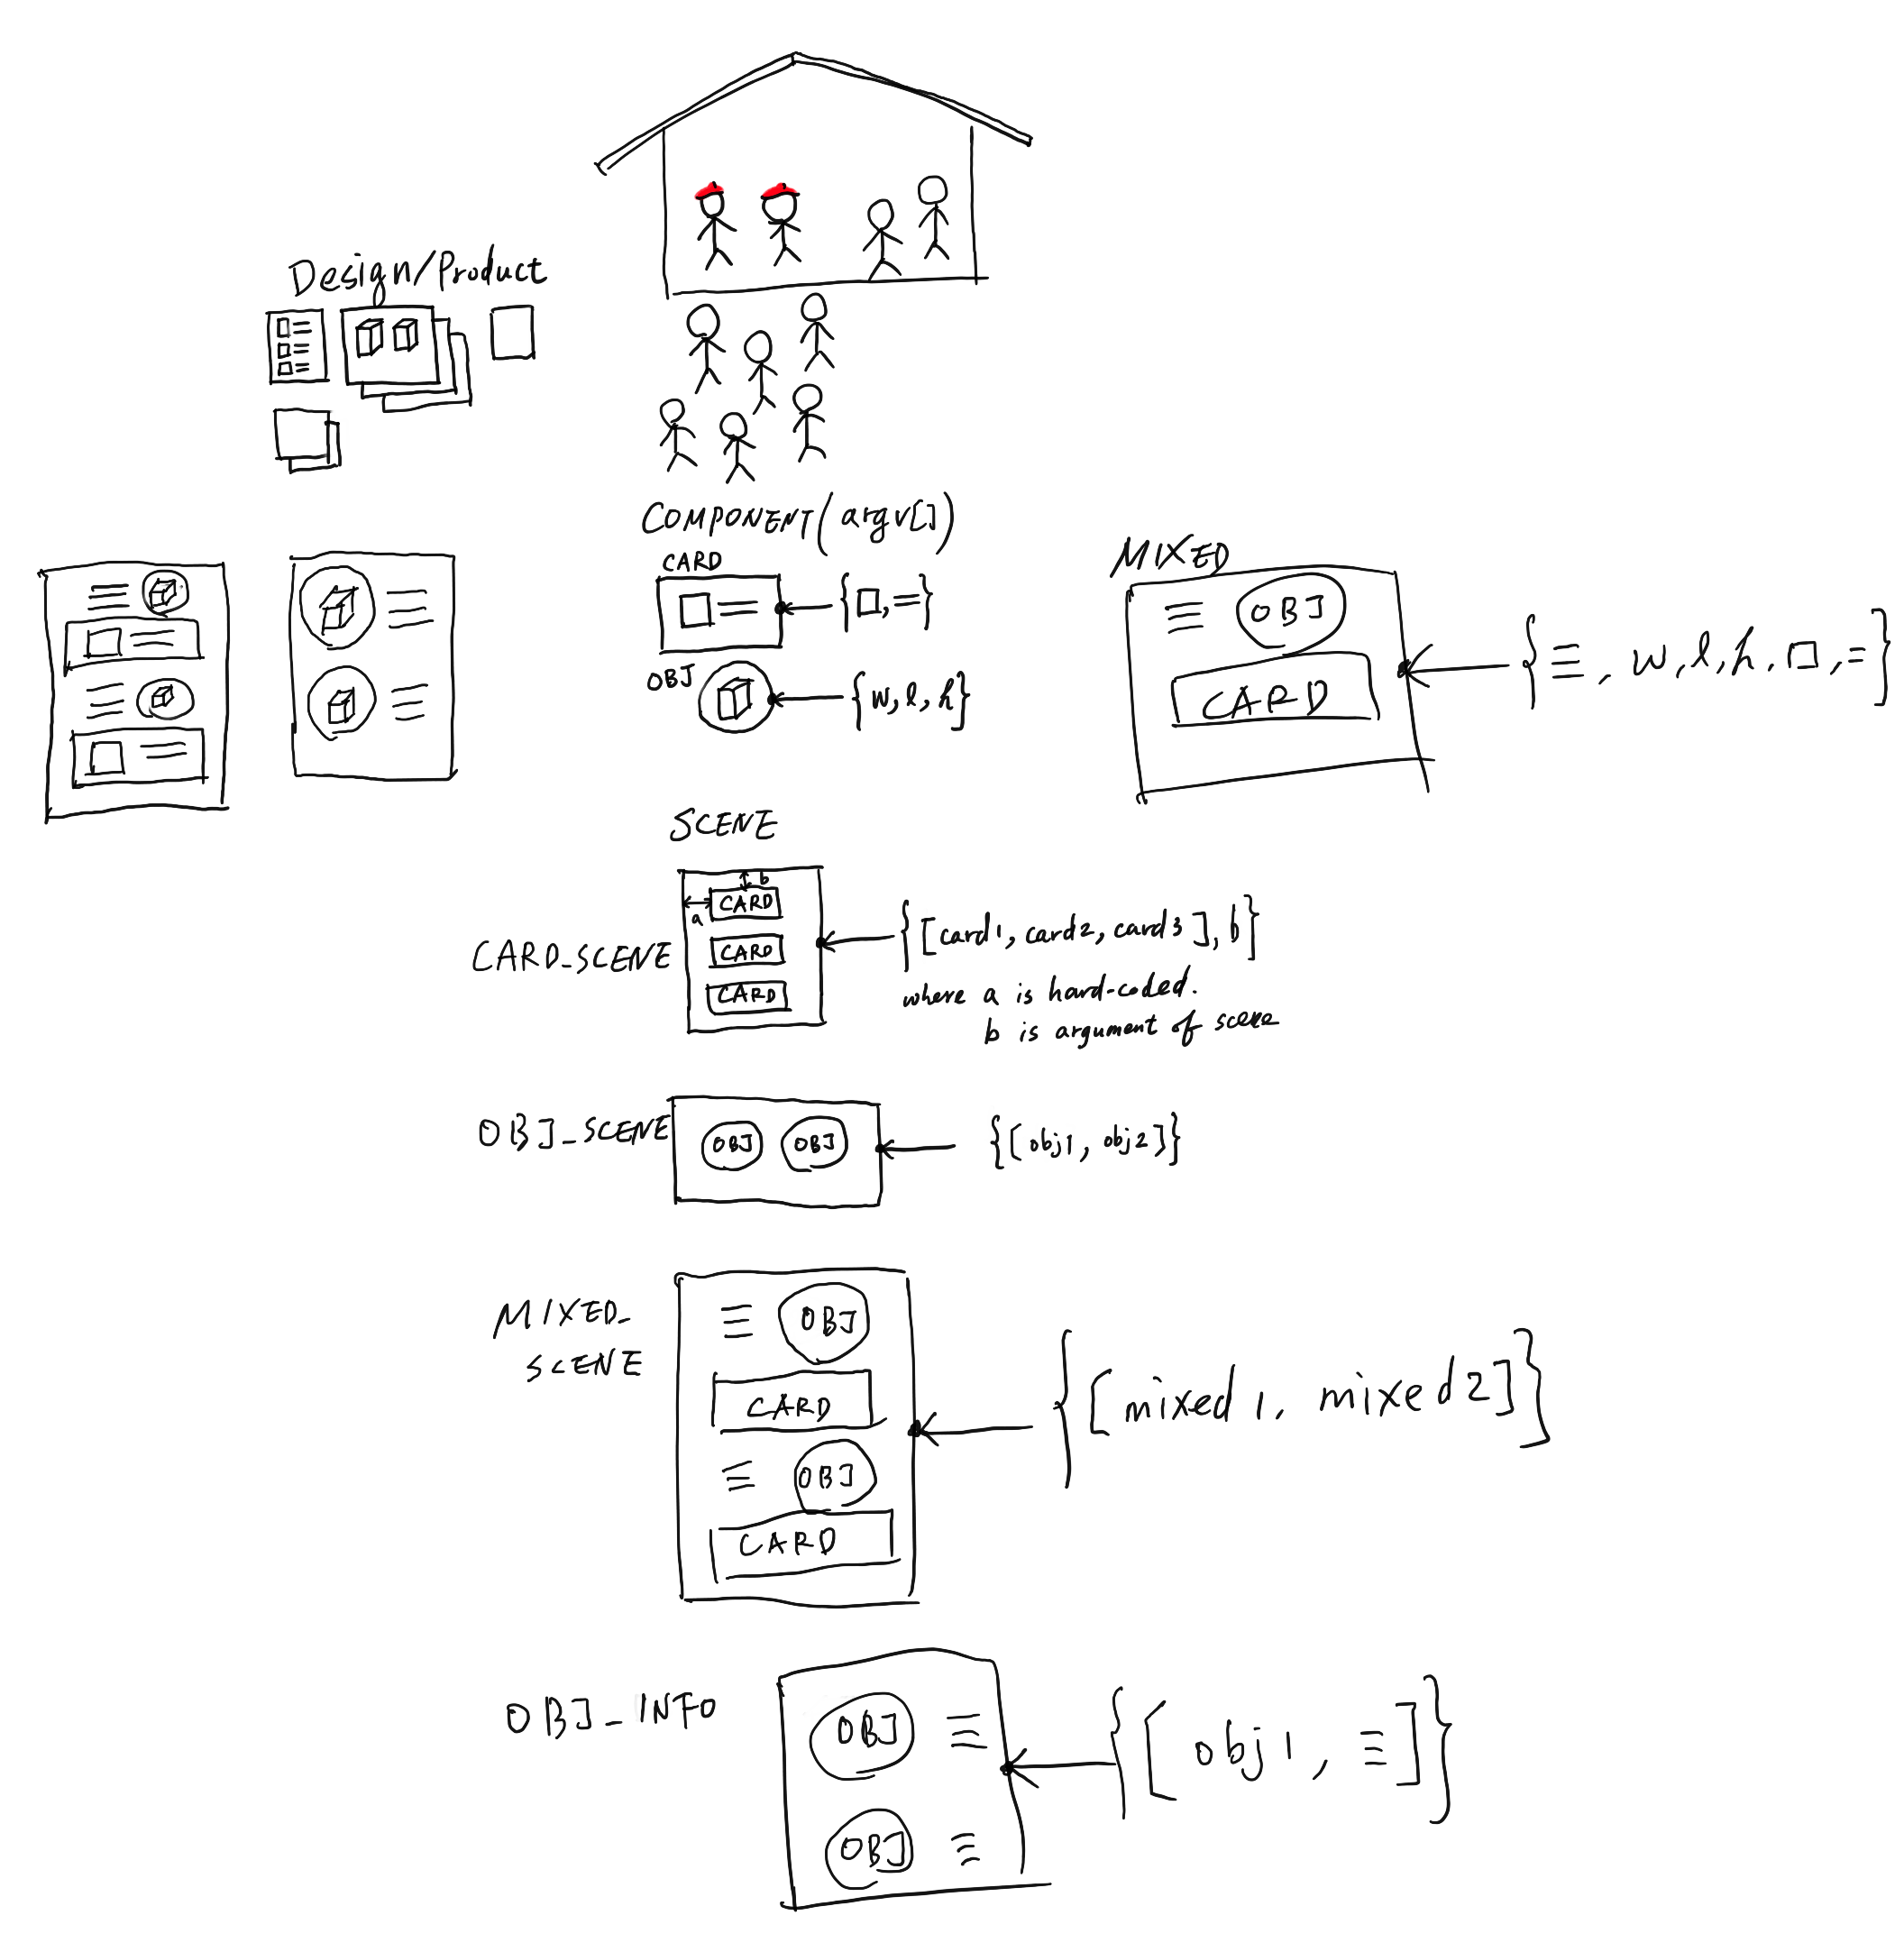 Design/Product
COMPONENT(argv[])
CARD
{□, =}
OBJ
{w, l, h}
MIXED
OBJ
CARD
{≡, w, l, h, □, =}
SCENE
b
a
CARD
CARD
CARD
CARD_SCENE
{[card1, card2, card3], b}
where a is hard-coded.
b is argument of scene
OBJ_SCENE
OBJ OBJ
{[obj1, obj2]}
MIXED_
SCENE
OBJ
CARD
OBJ
CARD
{[mixed1, mixed2]}
OBJ_INFO
OBJ
OBJ
{[obj1, ≡]}